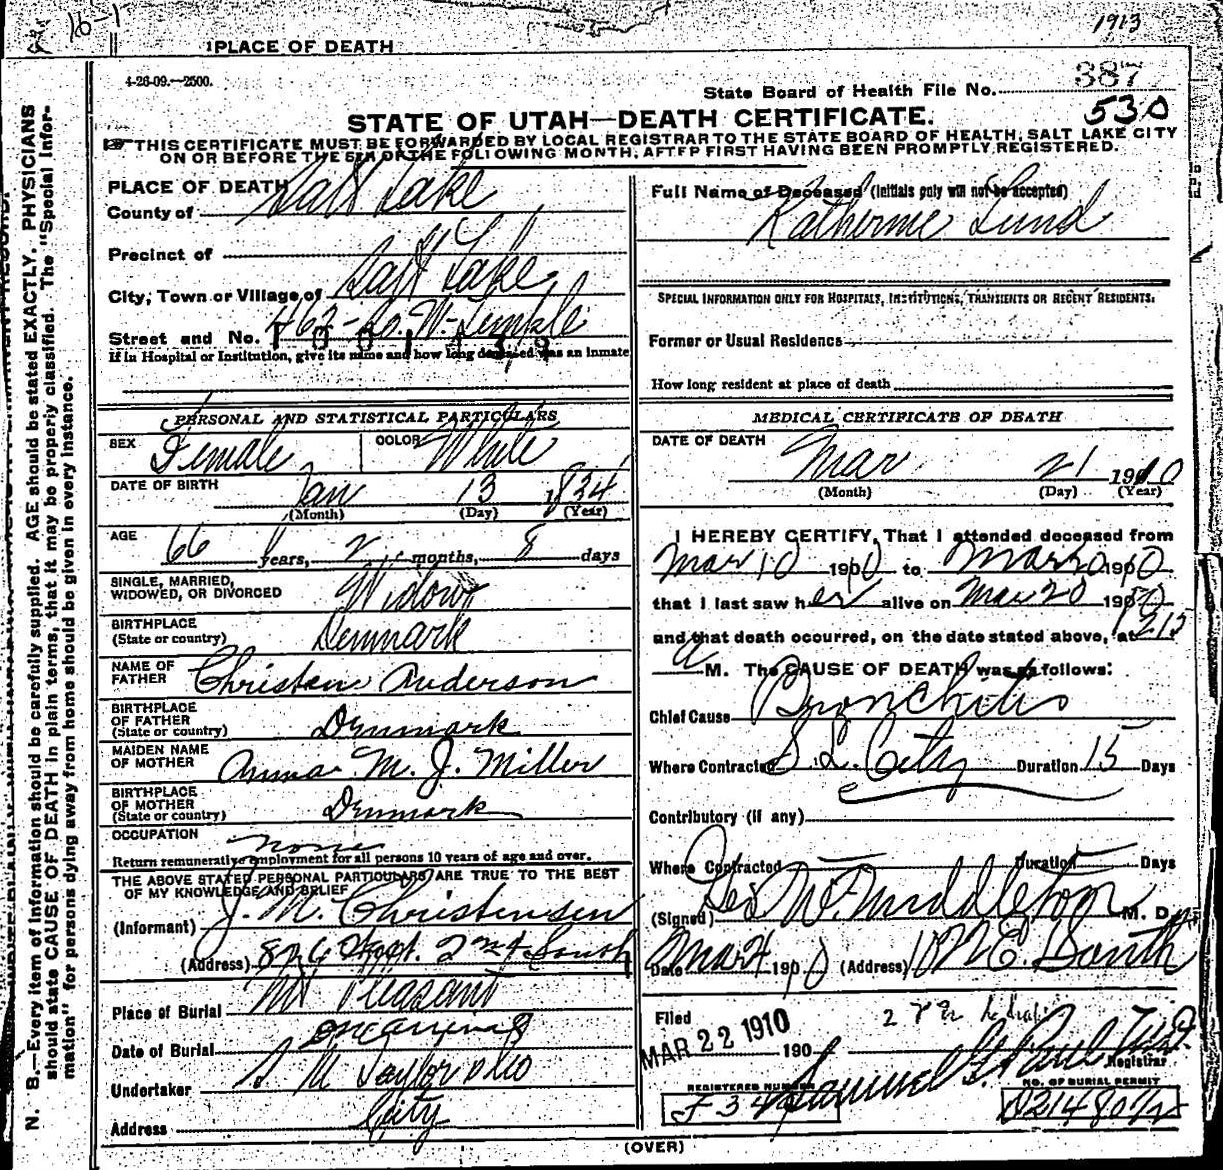 16-1
1913
1PLACE OF DEATH
4-26-09.—2500.
State Board of Health File No. 387
530
STATE OF UTAH—DEATH CERTIFICATE.
THIS CERTIFICATE MUST BE FORWARDED BY LOCAL REGISTRAR TO THE STATE BOARD OF HEALTH, SALT LAKE CITY
ON OR BEFORE THE 5TH OF THE FOLLOWING MONTH, AFTER FIRST HAVING BEEN PROMPTLY REGISTERED.
N. B.—Every item of Information should be carefully supplied. AGE should be stated EXACTLY. PHYSICIANS
should state CAUSE OF DEATH in plain terms, that it may be properly classified. The "Special Infor-
mation" for persons dying away from home should be given in every instance.
PLACE OF DEATH
County of Salt Lake
Precinct of
City, Town or Village of Salt Lake
Street and No. 463 - So. W. Temple
If in Hospital or Institution, give its name and how long deceased was an inmate
PERSONAL AND STATISTICAL PARTICULARS
SEX Female COLOR White
DATE OF BIRTH Jan 13 1834
(Month) (Day) (Year)
AGE 66 years, 2 months, 8 days
SINGLE, MARRIED,
WIDOWED, OR DIVORCED Widow
BIRTHPLACE
(State or country) Denmark
NAME OF
FATHER Christen Anderson
BIRTHPLACE
OF FATHER
(State or country) Denmark
MAIDEN NAME
OF MOTHER Anna M. J. Miller
BIRTHPLACE
OF MOTHER
(State or country) Denmark
OCCUPATION none
Return remunerative employment for all persons 10 years of age and over.
THE ABOVE STATED PERSONAL PARTICULARS ARE TRUE TO THE BEST
OF MY KNOWLEDGE AND BELIEF
(Informant) J. M. Christensen
(Address) 2nd South
Place of Burial Mt Pleasant
Date of Burial
Undertaker S M Taylor & Co
Address City
Full Name of Deceased (Initials only will not be accepted)
Katherine Lund
SPECIAL INFORMATION ONLY FOR HOSPITALS, INSTITUTIONS, TRANSIENTS OR RECENT RESIDENTS.
Former or Usual Residence
How long resident at place of death
MEDICAL CERTIFICATE OF DEATH
DATE OF DEATH
Mar 21 1910
(Month) (Day) (Year)
I HEREBY CERTIFY, That I attended deceased from
Mar 10 1910 to Mar 20 1910
that I last saw her alive on Mar 20 1910
and that death occurred, on the date stated above, at 1215
a M. The CAUSE OF DEATH was as follows:
Chief Cause Bronchitis
Where Contracted S. L. City Duration 15 Days
Contributory (if any)
Where Contracted Duration Days
(Signed) Geo W. Middleton M. D.
Date Mar 190 (Address) South
Filed
MAR 22 1910 190
Samuel G. Paul
Registrar
REGISTERED NUMBER
NO. OF BURIAL PERMIT
(OVER)